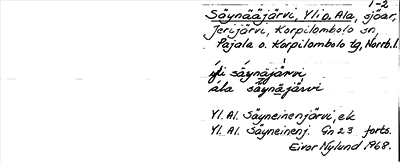 1-2
Säynääjärvi, Yli o. Ala, sjöar,
Jerijärvi, Korpilombolo sn,
Pajala o. Korpilombolo tg, Norrb.l.
yli säynäjärvi
ala säynäjärvi
Yl. Al. Säyneinenjärvi, ek
Yl. Al. Säyneinenj. Gn 23 forts.
Eivor Nylund 1968.